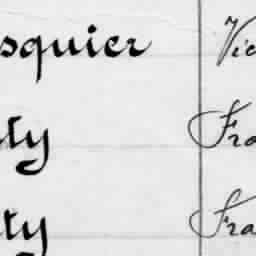 squier Vic
ty Fra
ty Fra